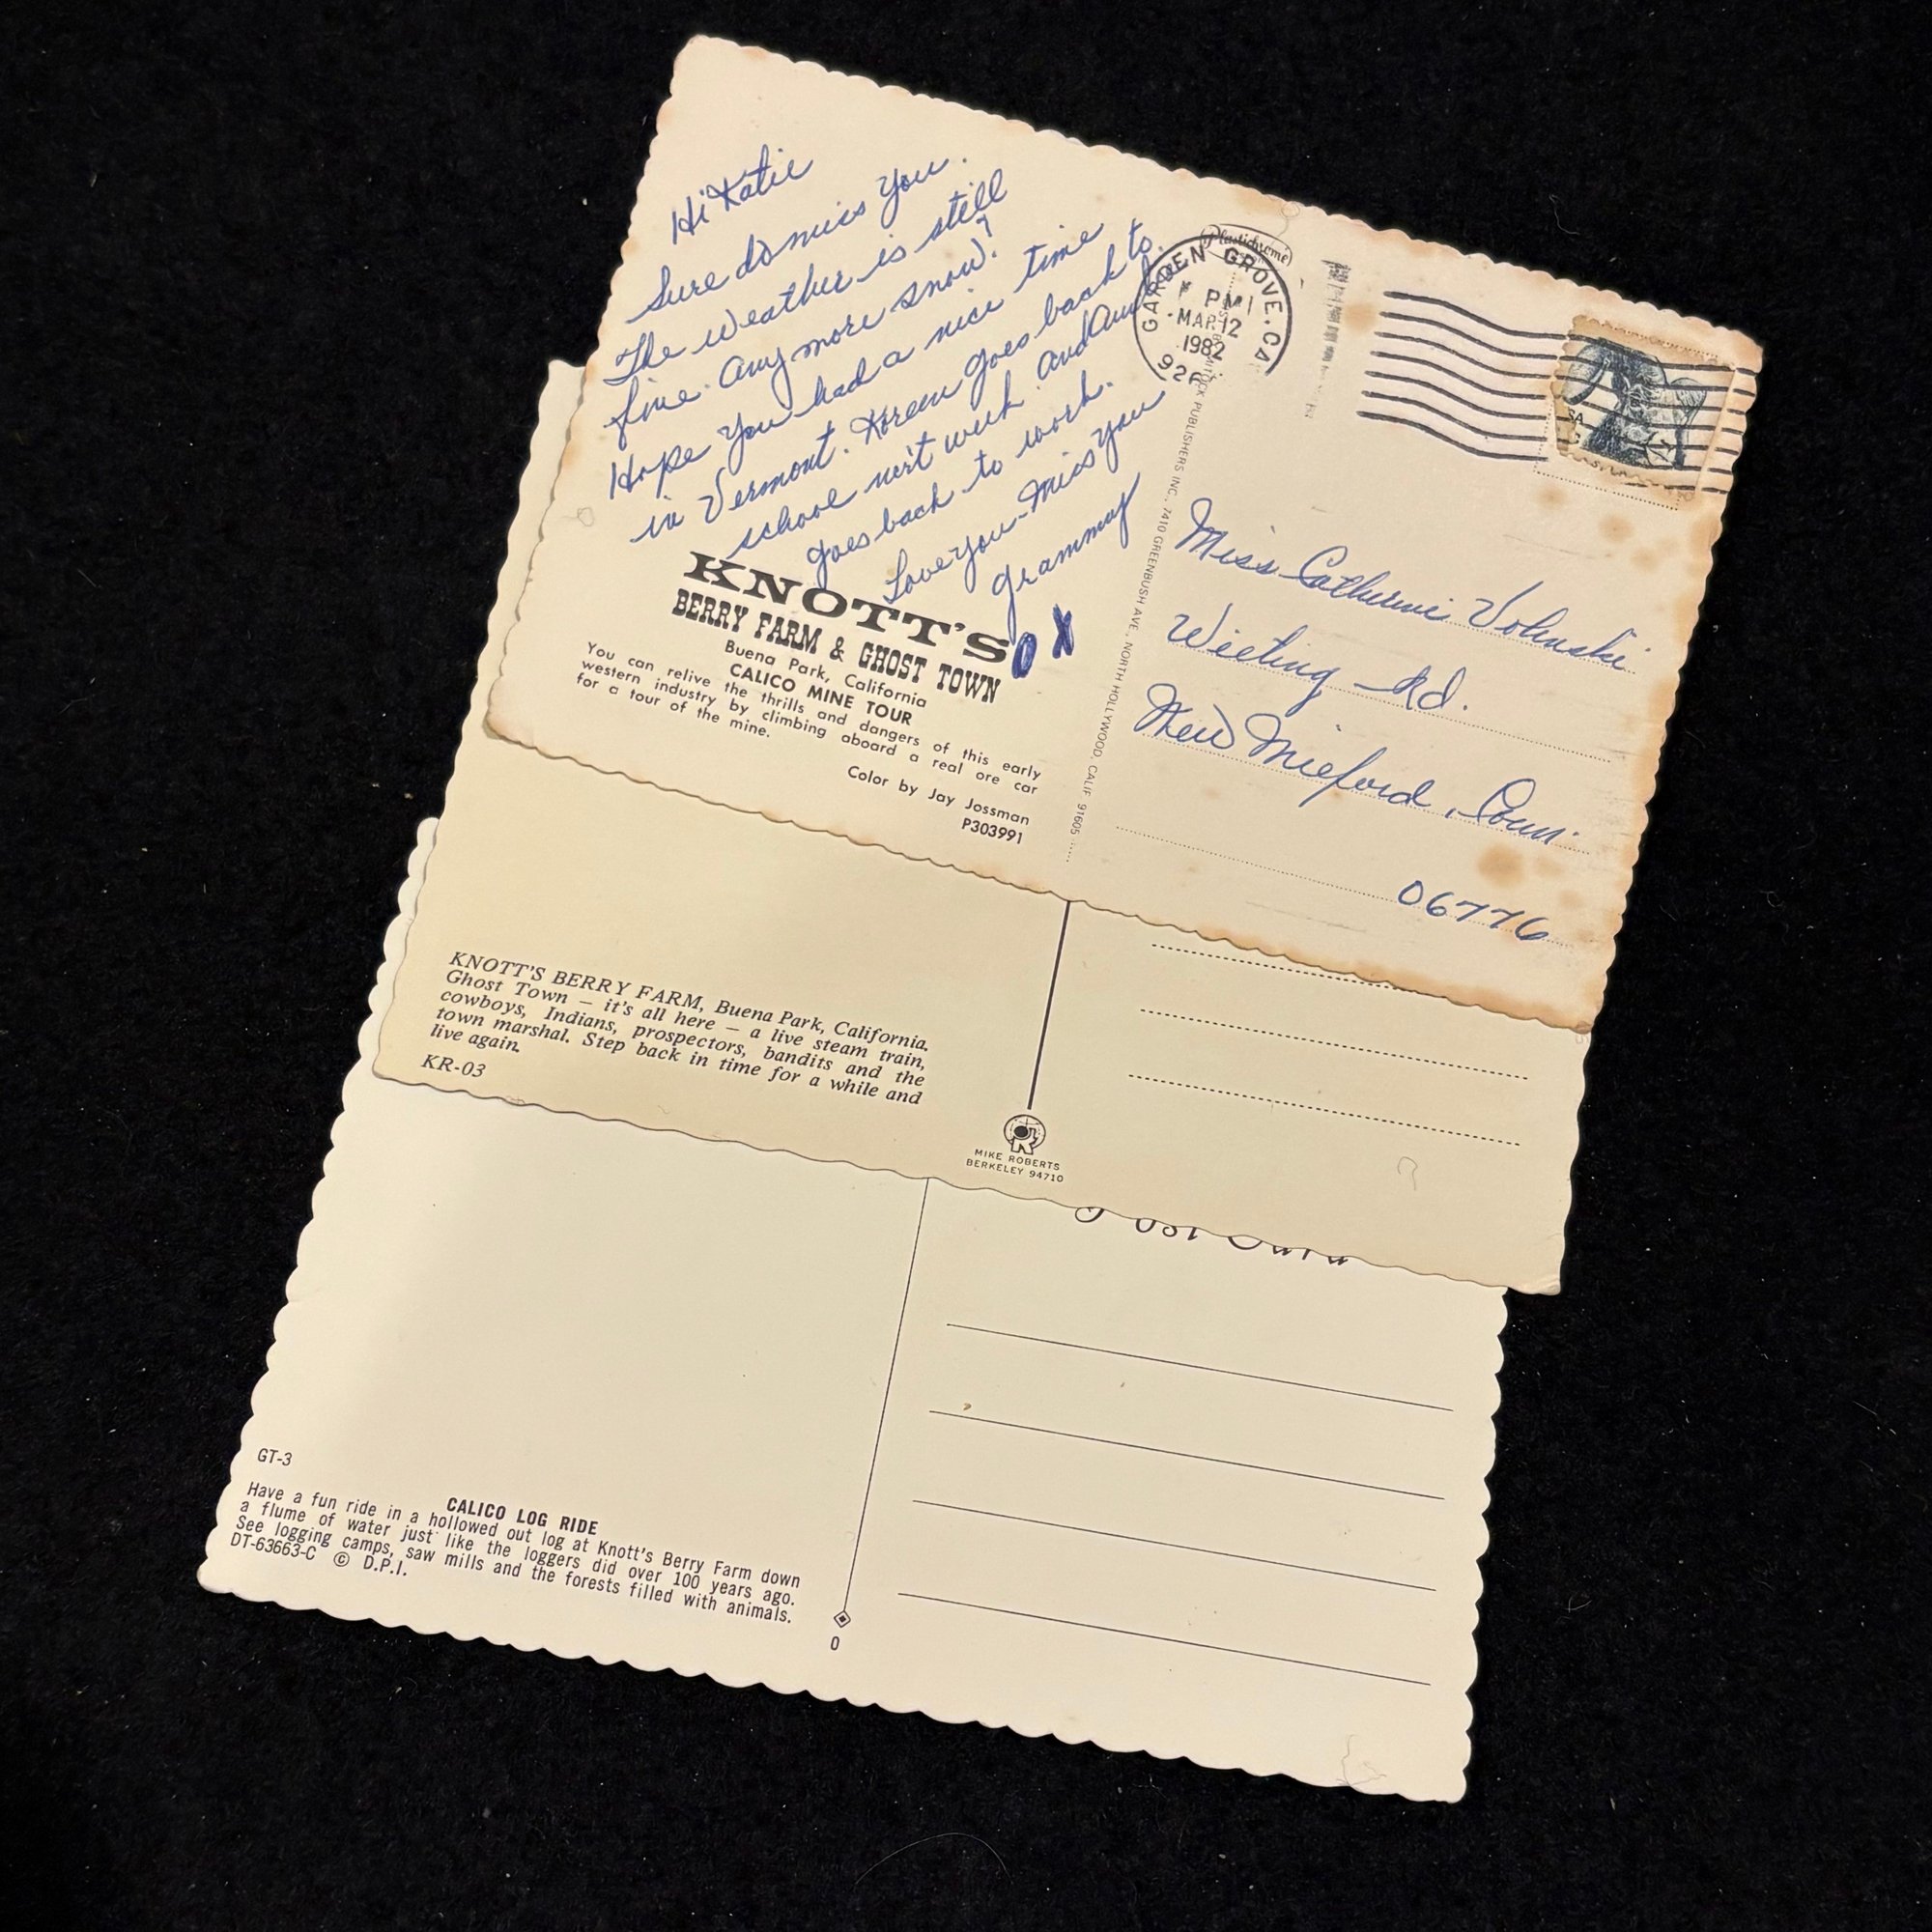 Hi Katie
Sure do miss you.
The weather is still
fine. Any more snow?
Hope you had a nice time
in Vermont. Koreen goes back to
school next week. And Aunt
goes back to work.
Love you - Miss you
Grammay
O X
KNOTT'S
BERRY FARM & GHOST TOWN
Buena Park, California
CALICO MINE TOUR
You can relive the thrills and dangers of this early
western industry by climbing aboard a real ore car
for a tour of the mine.
Color by Jay Jossman
P303991
Plastichrome
GARDEN GROVE, CA
PM
MAR 12
1982
PUBLISHERS INC., 7410 GREENBUSH AVE., NORTH HOLLYWOOD, CALIF. 91605
Miss Catherine
Wieting Rd.
New Milford, Conn.
06776
KNOTT'S BERRY FARM, Buena Park, California.
Ghost Town — it's all here — a live steam train,
cowboys, Indians, prospectors, bandits and the
town marshal. Step back in time for a while and
live again.
KR-03
MIKE ROBERTS
BERKELEY 94710
Post Card
GT-3
CALICO LOG RIDE
Have a fun ride in a hollowed out log at Knott's Berry Farm down
a flume of water just like the loggers did over 100 years ago.
See logging camps, saw mills and the forests filled with animals.
DT-63663-C © D.P.I.
0